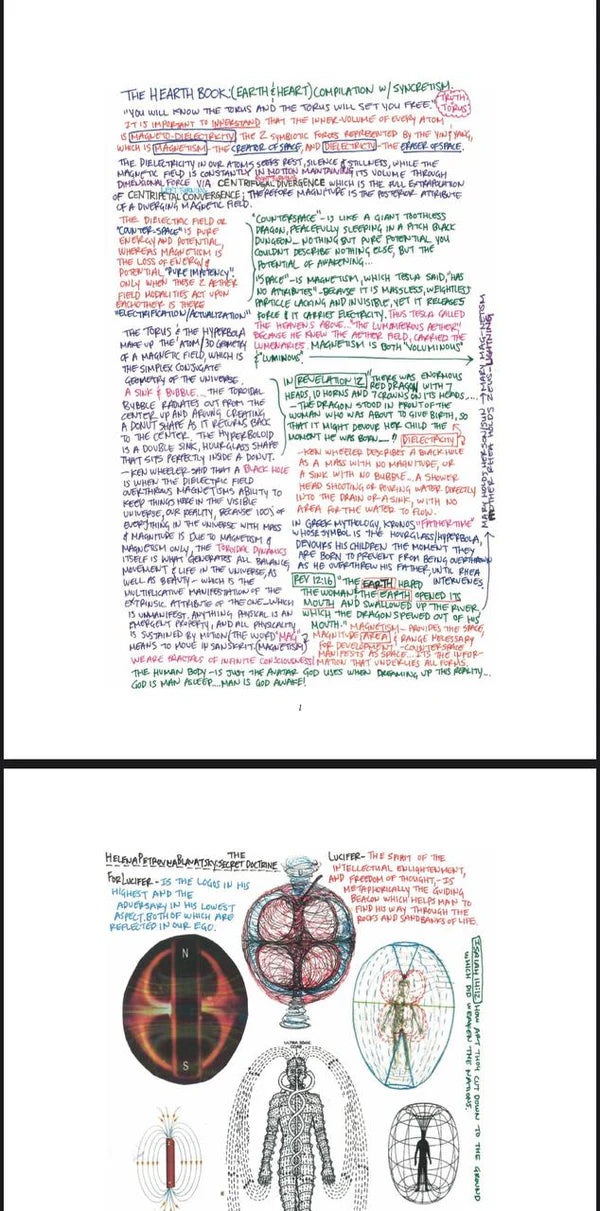 THE HEARTH BOOK:(EARTH & HEART) COMPILATION W/ SYNCRETISM.
"YOU WILL KNOW THE TORUS AND THE TORUS WILL SET YOU FREE."
TRUTH
TORUS
IT IS IMPORTANT TO INNERSTAND THAT THE INNER-VOLUME OF EVERY ATOM
IS MAGNETO-DIELECTRICITY, THE 2 SYMBIOTIC FORCES REPRESENTED BY THE YIN & YANG,
WHICH IS MAGNETISM-THE CREATOR OF SPACE, AND DIELECTRICITY-THE ERASER OF SPACE.
THE DIELECTRICITY IN OUR ATOMS SEEKS REST, SILENCE & STILLNESS, WHILE THE
MAGNETIC FIELD IS CONSTANTLY IN MOTION MAINTAINING ITS VOLUME THROUGH
DIMENSIONAL FORCE VIA CENTRIFUGAL DIVERGENCE WHICH IS THE FULL EXTRAPOLATION
OF CENTRIPETAL CONVERGENCE; THEREFORE MAGNITUDE IS THE POSTERIOR ATTRIBUTE
OF A DIVERGING MAGNETIC FIELD.
THE DIELECTRIC FIELD OR
"COUNTER-SPACE" IS PURE
ENERGY AND POTENTIAL,
WHEREAS MAGNETISM IS
THE LOSS OF ENERGY &
POTENTIAL, "PURE IMPOTENCY".
ONLY WHEN THESE 2 AETHER
FIELD MODALITIES ACT UPON
EACHOTHER IS THERE
"ELECTRIFICATION/ACTUALIZATION"
"COUNTERSPACE"-IS LIKE A GIANT TOOTHLESS
DRAGON, PEACEFULLY SLEEPING IN A PITCH BLACK
DUNGEON... NOTHING BUT PURE POTENTIAL YOU
COULDN'T DESCRIBE NOTHING ELSE, BUT THE
POTENTIAL OF AWAKENING...
"SPACE"-IS MAGNETISM, WHICH TESLA SAID, "HAS
NO ATTRIBUTES"-BECAUSE IT IS MASSLESS, WEIGHTLESS
PARTICLE LACKING AND INVISIBLE, YET IT RELEASES
FORCE & IT CARRIES ELECTRICITY. THUS TESLA CALLED
THE HEAVENS ABOVE.."THE LUMINIFEROUS AETHER"
BECAUSE HE KNEW THE AETHER FIELD, CARRIED THE
LUMINARIES. MAGNETISM IS BOTH "VOLUMINOUS"
& "LUMINOUS"
THE TORUS & THE HYPERBOLA
MAKE UP THE ATOM/3D GEOMETRY
OF A MAGNETIC FIELD, WHICH IS
THE SIMPLEX CONJUGATE
GEOMETRY OF THE UNIVERSE.
A SINK & BUBBLE... THE TOROIDAL
BUBBLE RADIATES OUT FROM THE
CENTER UP AND AROUND CREATING
A DONUT SHAPE AS IT RETURNS BACK
TO THE CENTER. THE HYPERBOLOID
IS A DOUBLE SINK, HOURGLASS SHAPE
THAT SITS PERFECTLY INSIDE A DONUT.
-KEN WHEELER SAID THAT A BLACK HOLE
IS WHEN THE DIELECTRIC FIELD
OVERTHROWS MAGNETISMS ABILITY TO
KEEP THINGS HERE IN THE VISIBLE
UNIVERSE, OUR REALITY, BECAUSE 100% OF
EVERYTHING IN THE UNIVERSE WITH MASS
& MAGNITUDE IS DUE TO MAGNETISM &
MAGNETISM ONLY, THE TOROIDAL DYNAMICS
ITSELF IS WHAT GENERATES ALL BALANCE,
MOVEMENT & LIFE IN THE UNIVERSE, AS
WELL AS BEAUTY-WHICH IS THE
MULTIPLICATIVE MANIFESTATION OF THE
EXTRINSIC ATTRIBUTE OF THE ONE-WHICH
IS UNMANIFEST. ANYTHING PHYSICAL IS AN
EMERGENT PROPERTY, AND ALL PHYSICALITY
IS SUSTAINED BY MOTION (THE WORD "MAG"
MEANS TO MOVE IN SANSKRIT. (MAGNETISM)
IN REVELATION 12, "THERE WAS ENORMOUS
RED DRAGON WITH 7
HEADS, 10 HORNS AND 7 CROWNS ON ITS HEADS....
-THE DRAGON STOOD IN FRONT OF THE
WOMAN WHO WAS ABOUT TO GIVE BIRTH, SO
THAT IT MIGHT DEVOUR HER CHILD THE
MOMENT HE WAS BORN...." DIELECTRICITY
-KEN WHEELER DESCRIBES A BLACK HOLE
AS A MASS WITH NO MAGNITUDE, OR
A SINK WITH NO BUBBLE... A SHOWER
HEAD SHOOTING OR POURING WATER DIRECTLY
INTO THE DRAIN OR A SINK, WITH NO
AREA FOR THE WATER TO FLOW.
IN GREEK MYTHOLOGY, KRONOS "FATHER-TIME"
WHOSE SYMBOL IS THE HOURGLASS/HYPERBOLA,
DEVOURS HIS CHILDREN THE MOMENT THEY
ARE BORN TO PREVENT FROM BEING OVERTHROWN
AS HE OVERTHREW HIS FATHER, UNTIL RHEA
INTERVENES,
REV 12:16 "THE EARTH HELPED
THE WOMAN & THE EARTH OPENED ITS
MOUTH AND SWALLOWED UP THE RIVER,
WHICH THE DRAGON SPEWED OUT OF HIS
MOUTH." MAGNETISM-PROVIDES THE SPACE,
MAGNITUDE, AREA & RANGE NECESSARY
FOR DEVELOPMENT-COUNTERSPACE
MANIFESTS AS SPACE... ITS THE INFOR-
MATION THAT UNDERLIES ALL FORMS.
MARY HOLDS HER SON/SUN → MARY MAGNETISM
MOTHER RHEA HOLDS ZEUS-LIGHTNING
WE ARE FRACTALS OF INFINITE CONSCIOUSNESS!
THE HUMAN BODY-IS JUST THE AVATAR GOD USES WHEN DREAMING UP THIS REALITY...
GOD IS MAN ASLEEP....MAN IS GOD AWAKE!
1
HELENA PETROVNA BLAVATSKY THE SECRET DOCTRINE
FOR LUCIFER-IS THE LOGOS IN HIS
HIGHEST AND THE
ADVERSARY IN HIS LOWEST
ASPECT. BOTH OF WHICH ARE
REFLECTED IN OUR EGO.
LUCIFER-THE SPIRIT OF THE
INTELLECTUAL ENLIGHTENMENT,
AND FREEDOM OF THOUGHT,-IS
METAPHORICALLY THE GUIDING
BEACON WHICH HELPS MAN TO
FIND HIS WAY THROUGH THE
ROCKS AND SANDBANKS OF LIFE.
N
S
ISAIAH 14:12 HOW ART THOU CUT DOWN TO THE GROUND
WHICH DID WEAKEN THE NATIONS.